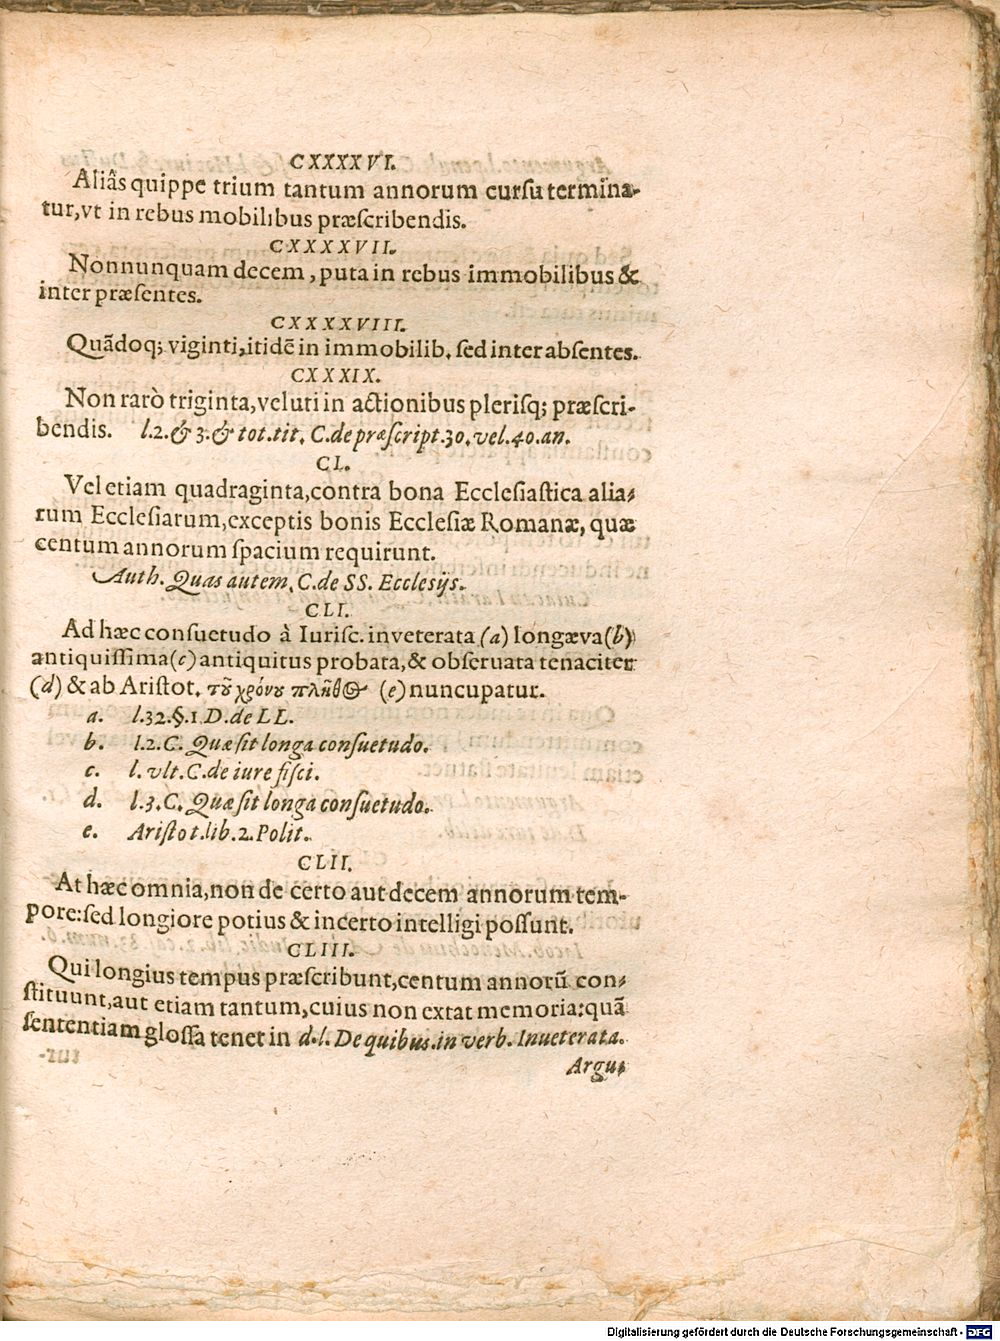 CXXXXVI.
Aliâs quippe trium tantum annorum cursu termina-
tur, vt in rebus mobilibus præscribendis.
CXXXXVII.
Nonnunquam decem, puta in rebus immobilibus &
inter præsentes.
CXXXXVIII.
Quãdoq; viginti, itidē in immobilib. sed inter absentes.
CXXXIX.
Non rarò triginta, veluti in actionibus plerisq; præscri-
bendis. l. 2. & 3. & tot. tit. C. de præscript. 30. vel. 40. an.
CL.
Vel etiam quadraginta, contra bona Ecclesiastica alia-
rum Ecclesiarum, exceptis bonis Ecclesiæ Romanæ, quæ
centum annorum spacium requirunt.
Auth. Quas autem. C. de SS. Ecclesijs.
CLI.
Ad hæc consuetudo à Iurisc. inveterata (a) longæva (b)
antiquissima (c) antiquitus probata, & obseruata tenaciter
(d) & ab Aristot. τοῦ χρόνου πλῆθος (e) nuncupatur.
a. l. 32. §. 1 D. de LL.
b. l. 2. C. Quæ sit longa consuetudo.
c. l. vlt. C. de iure fisci.
d. l. 3. C. Quæ sit longa consuetudo.
e. Aristot. lib. 2. Polit.
CLII.
At hæc omnia, non de certo aut decem annorum tem-
pore: sed longiore potius & incerto intelligi possunt.
CLIII.
Qui longius tempus præscribunt, centum annorũ con-
stituunt, aut etiam tantum, cuius non extat memoria: quã
sententiam glossa tenet in d. l. De quibus. in verb. Inueterata.
Argu-
Digitalisierung gefördert durch die Deutsche Forschungsgemeinschaft - DFG